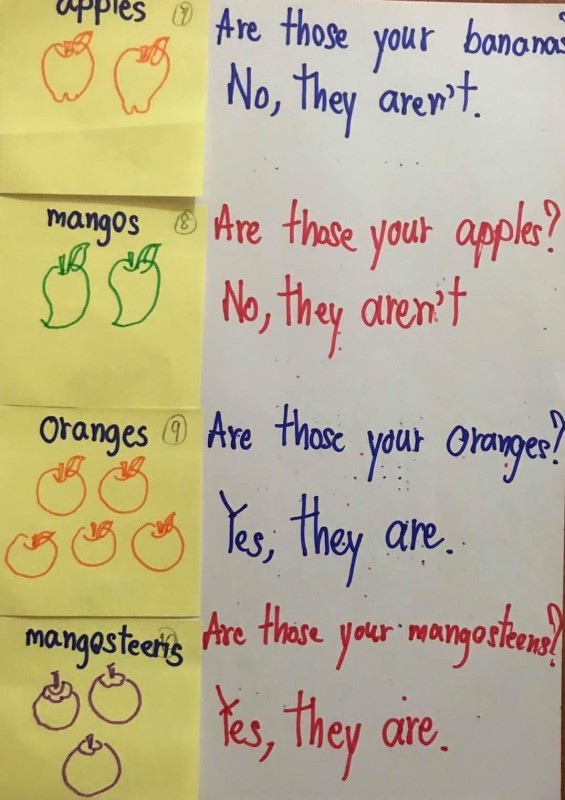 apples 7
Are those your bananas
No, they aren't.
mangos 8
Are those your apples?
No, they aren't
Oranges 9
Are those your Oranges?
Yes, they are.
mangosteens
Are those your mangosteens?
Yes, they are.